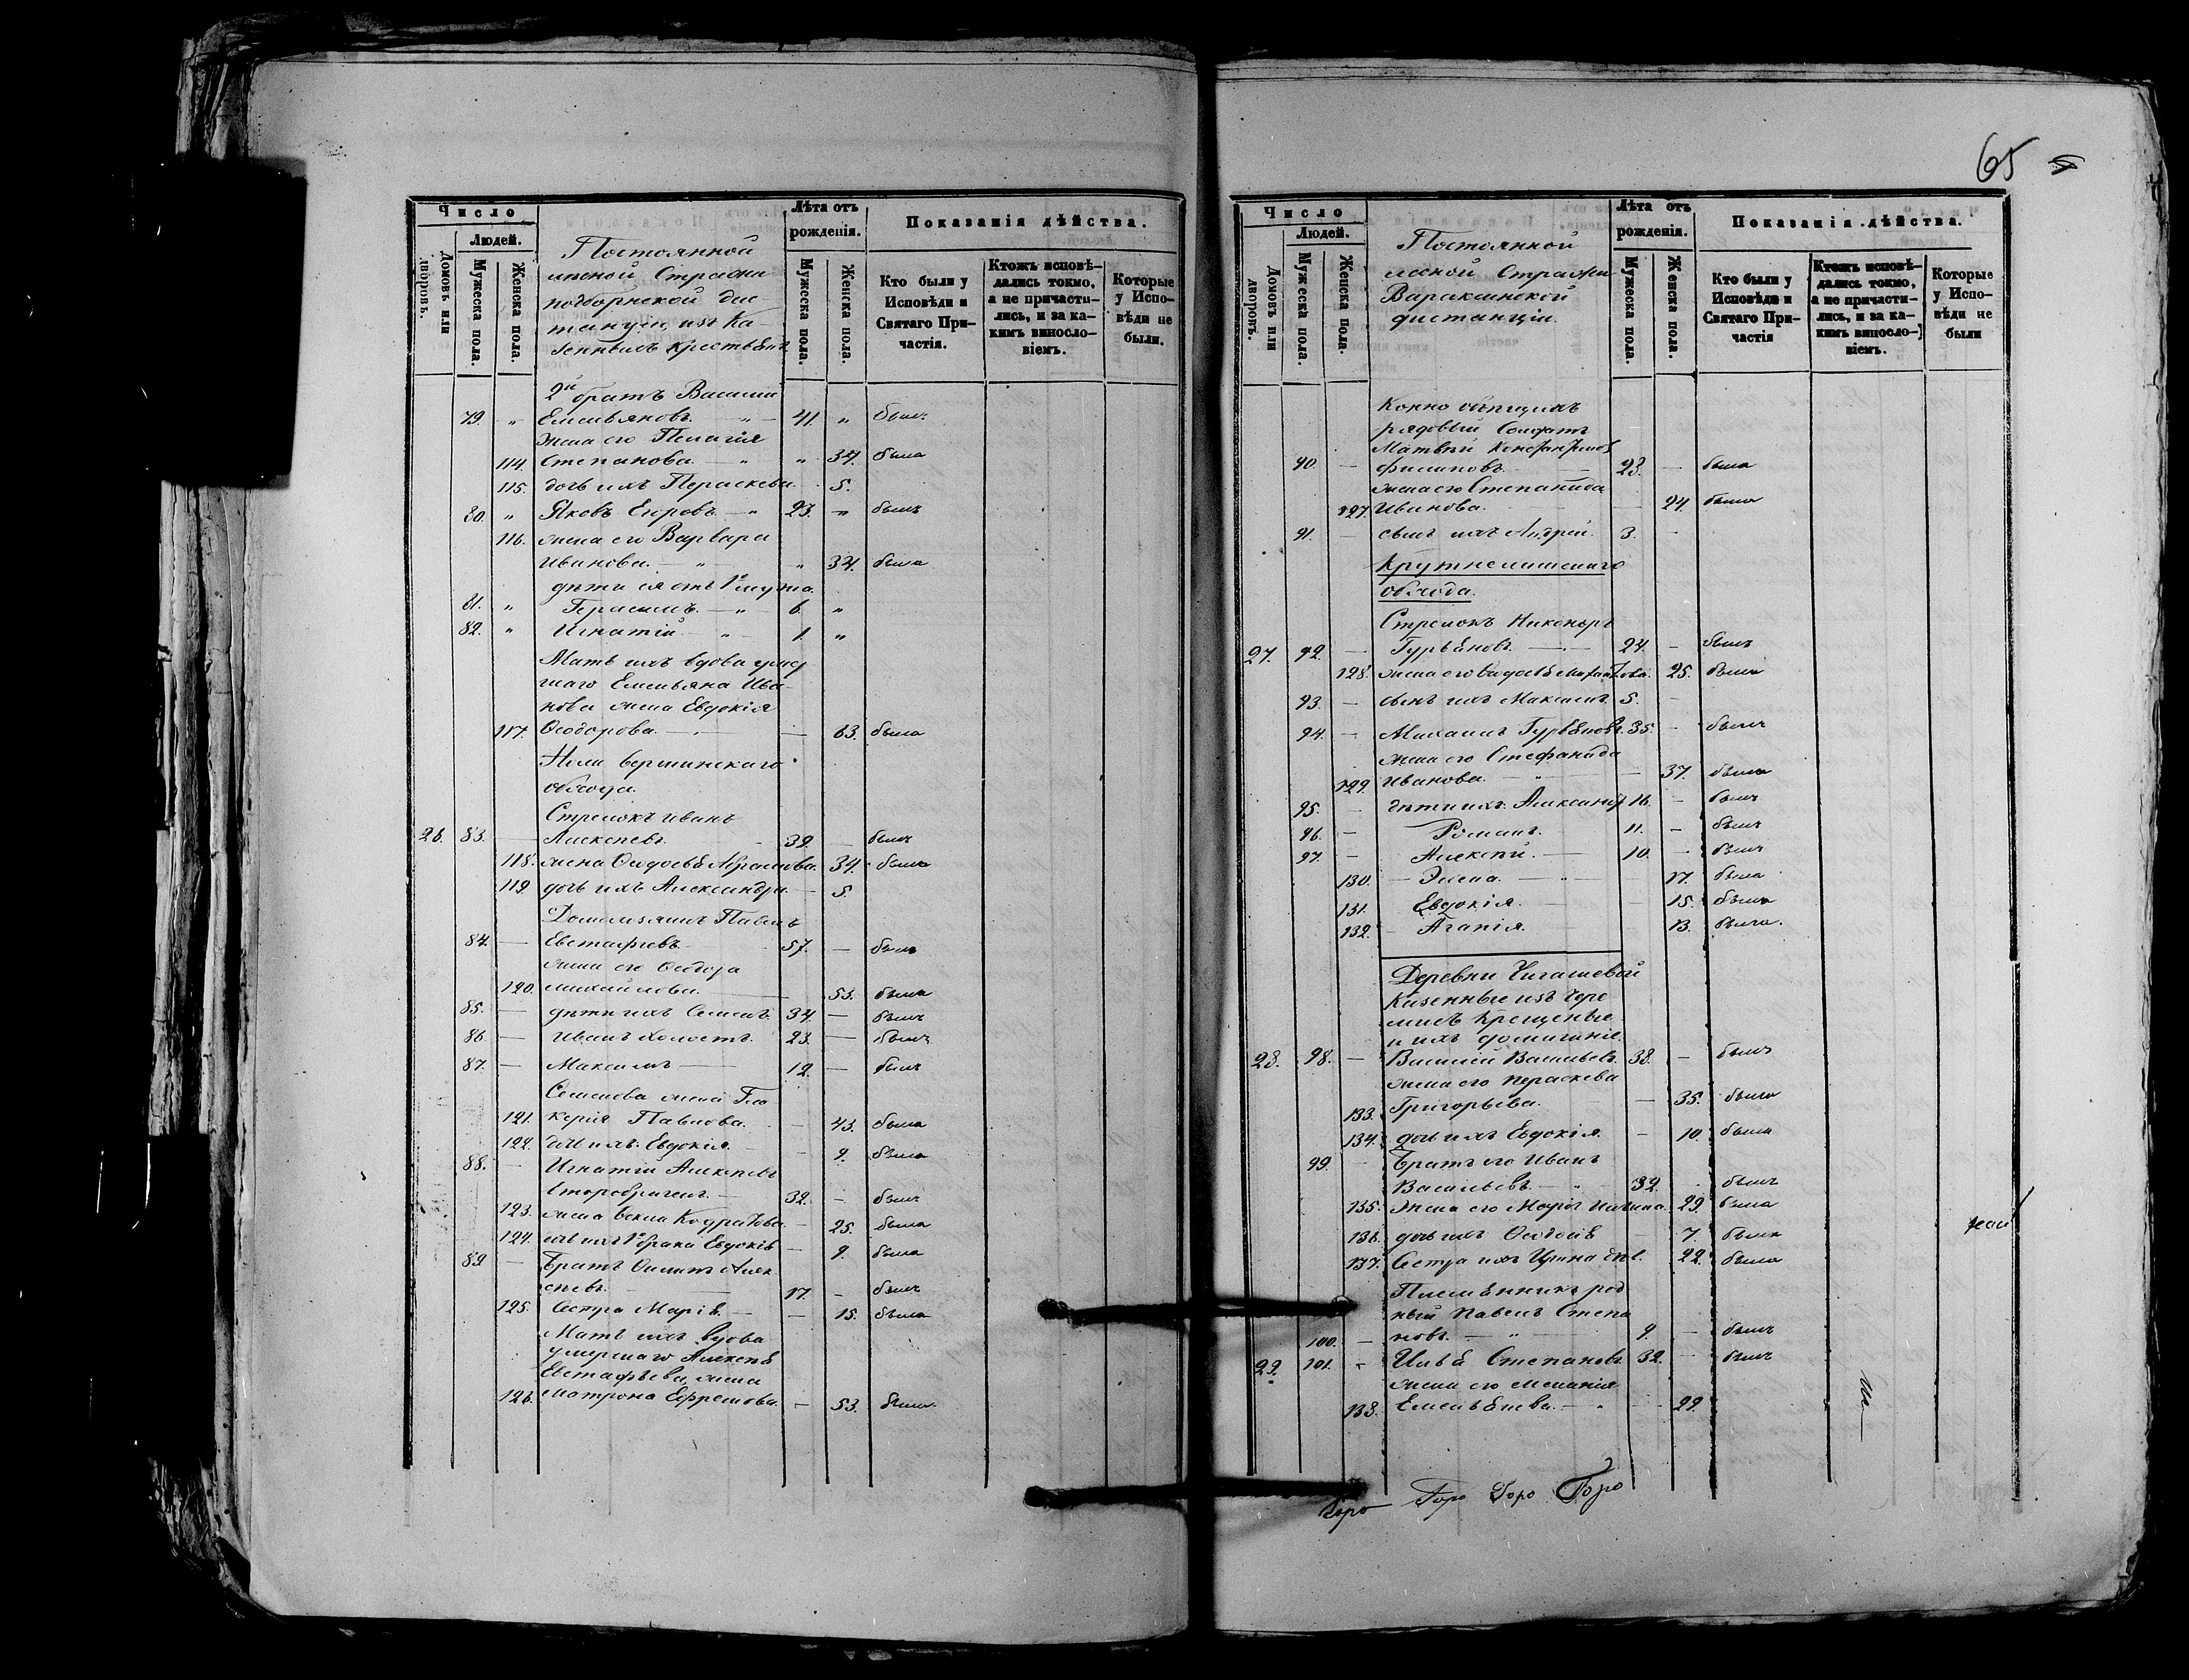 65
Число
Людей.
Домовъ или дворовъ.
Мужеска пола.
Женска пола.
Постоянной
лѣсной Стражи
подборнской дис
танціи, изъ Ка-
зенныхъ крестьянъ
Лѣта отъ
рожденія.
Мужеска пола.
Женска пола.
Показанія дѣйства.
Кто были у
Исповѣди и
Святаго При-
частія.
Ктожъ исповѣ-
дались токмо,
а не причасти-
лись, и за ка-
кимъ виносло-
віемъ.
Которые
у Испо-
вѣди не
были.
2й братъ Василій
79. " Емельяновъ. " 41. " былъ
жена его Пелагія
114. Степанова. " " 34. была
115. дочь ихъ Параскева. 5.
80. " Яковъ Егоровъ " 23. " былъ
116. жена его Варвара
Иванова. " " 34. была
дѣти ея отъ 1го мужа.
81. " Герасимъ. " 6. "
82. " Игнатій " 1. "
Мать ихъ вдова умер
шаго Емельяна Ива
нова жена Евдокія
117. Ѳеодорова. — — 63. была
вершинскаго
обхода.
Стрелокъ Иванъ
26. 83. — Алексѣевъ. 39. — былъ
118. жена Ѳеодосья Абрамова. 34. была
119. дочь ихъ Александра. — 5.
Павелъ
84. — Евстафіевъ. 57. — былъ
жена его Ѳеодора
120. Михайлова. — 53. была
85. — дѣти ихъ Семенъ. 34. — былъ
86. — Иванъ холостъ. 23. — былъ
87. — Максимъ — 12. — былъ
Семенова жена Гли
121. керія Павлова. — 43. была
122. дочь ихъ Евдокія. — 9. была
88. — Игнатій Алексѣевъ
второбраченъ. — 32. — былъ
123. жена Кодратова. — 25. была
124. дочь ихъ 1го брака Евдокія — 9. была
89. — Братъ Алек
сѣевъ. 17. — былъ
125. Сестра Марія. — — 15. была
Мать ихъ вдова
умершаго Алексѣя
Евстафьева, жена
126. Матрона Ефремова. — 53. была.
Число
Людей.
Домовъ или дворовъ.
Мужеска пола.
Женска пола.
Постоянной
лѣсной Стражи
Вараксинской
дистанціи.
Лѣта отъ
рожденія.
Мужеска пола.
Женска пола.
Показанія дѣйства.
Кто были у
Исповѣди и
Святаго При-
частія
Ктожъ исповѣ-
дались токмо,
а не причасти-
лись, и за ка-
кимъ виносло-
віемъ.
Которые
у Испо-
вѣди не
были
Конно объѣщикъ
рядовый Солдатъ
Матвѣй Константиновъ
90. — Филиповъ. — 23. — была
жена его Степанида
127. Иванова. — 24. была
91. — сынъ ихъ Андрей. 3. —
обхода.
Стрелокъ Никоноръ
27. 92. — Гурьяновъ. — 24. — былъ
128. жена его 25. была
93. — сынъ ихъ Максимъ. 5. —
94. — Михаилъ Гурьяновъ. 35. — былъ
жена его Стефанида
129. Иванова. — — 37. была
95. — дѣти ихъ Александръ 16. — былъ
96. — Романъ. 11. — былъ
97. — Алексѣй. — 10. — былъ
130. — Елена. — 17. была
131. Евдокія. — 15. была
132. — Агапія. 13. была.
Деревни Чигашевой
Казенные изъ Чере
мисъ Крещеные
и ихъ домашніе.
28. 98. — Василій Васильевъ. 38. — былъ
жена его Параскева
133. Григорьева. — 35. была
134. дочь ихъ Евдокія. — 10. была
99. — Братъ его Иванъ
Васильевъ. — 32. былъ
135. Жена его Марія Ильина. 29. была
136. дочь ихъ Ѳеодосія — 7. была
137. Сестра ихъ Ирина дѣв. 22. была
Племянникъ род
ный Павелъ Степа
100. — новъ. — " 9. — былъ
29. 101. — Илья Степановъ. 32. — былъ
жена его Меланія
138. Емельянова. — 29.
Торо Торо Торо Торо